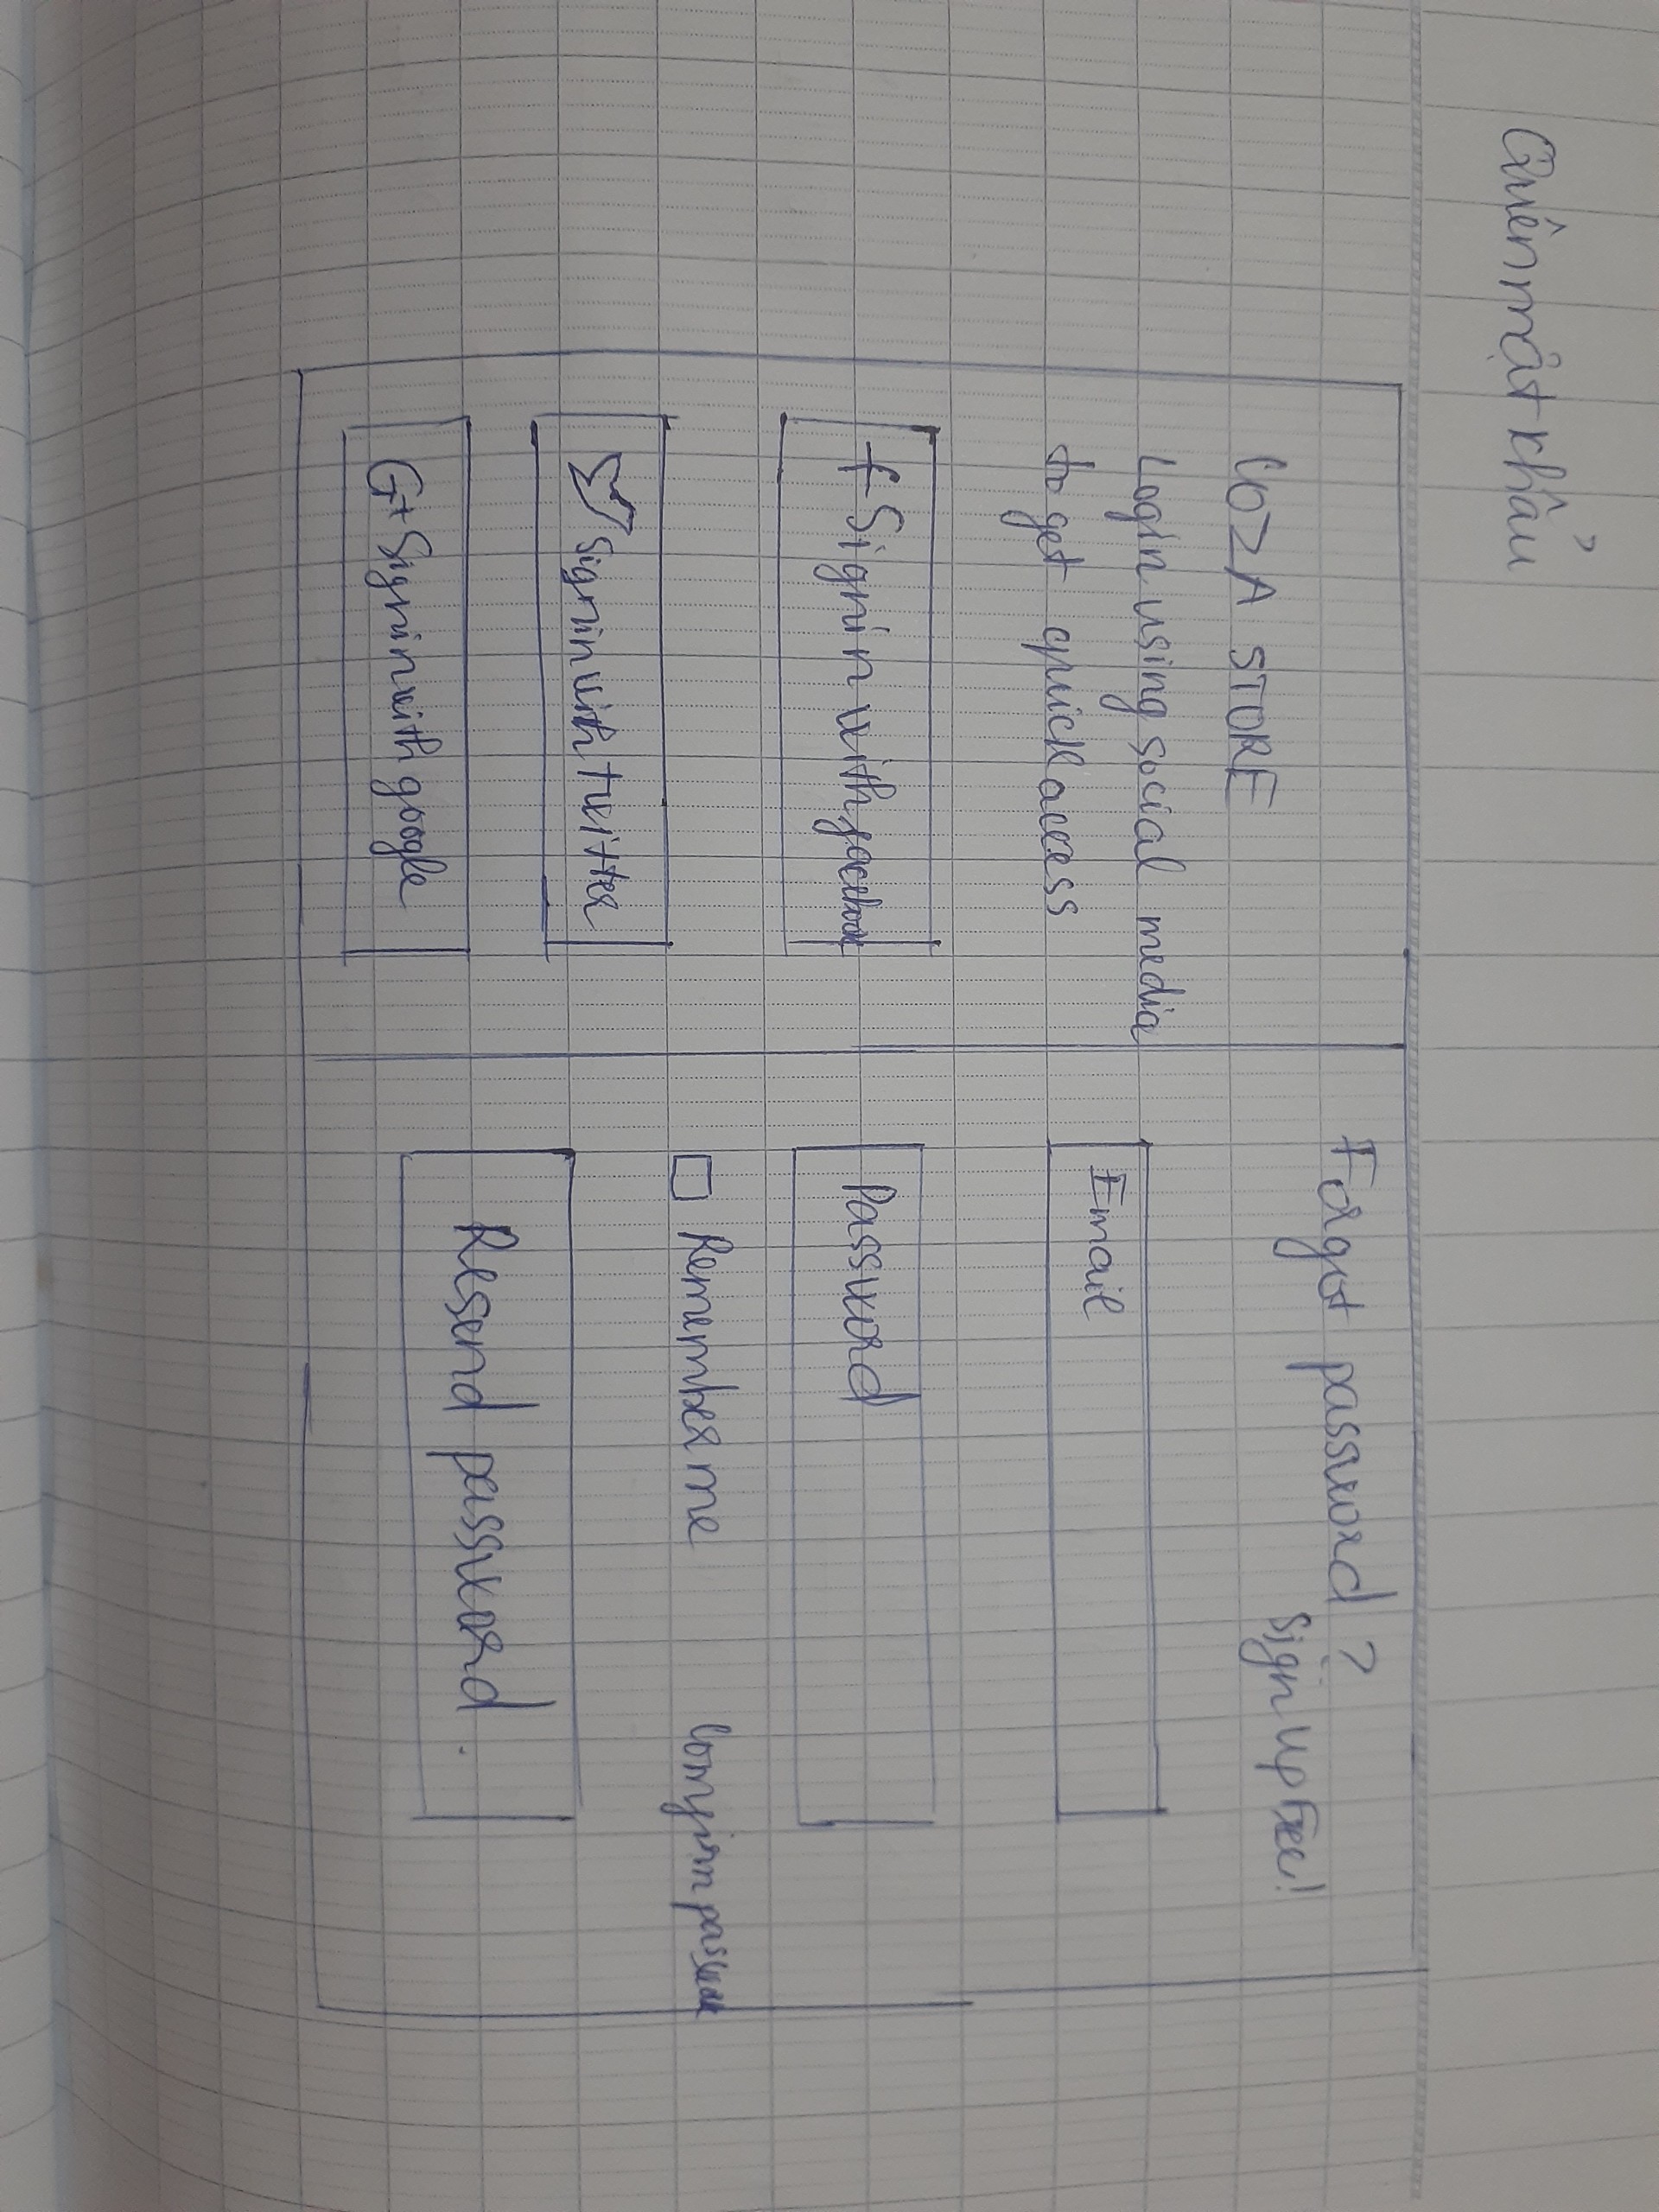 Quên mật khẩu
COZA STORE
Login using social media
to get quick access
f Sign in with facebook
Sign in with twitter
G+ Sign in with google
Forgot password ?
Sign up Free!
Email
Password
Remember me
Comfirm password
Resend password.